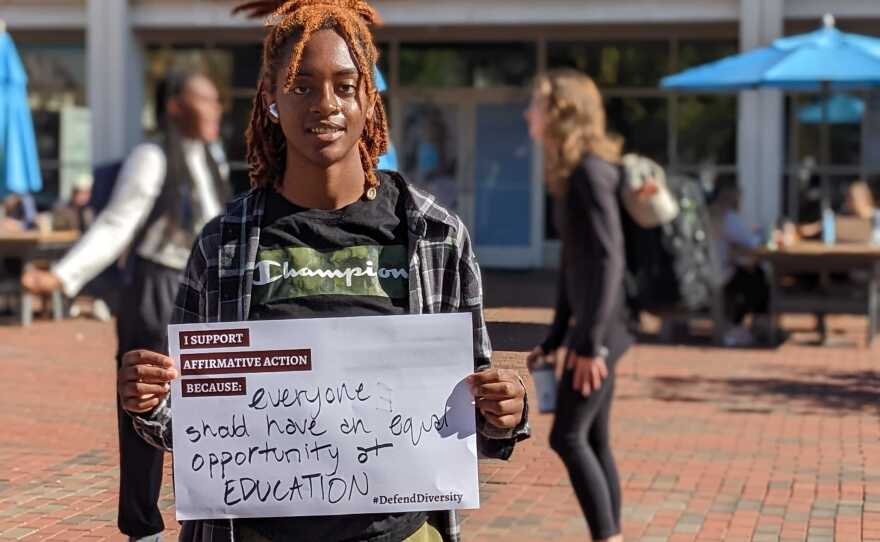 Champion
I SUPPORT
AFFIRMATIVE ACTION
BECAUSE:
everyone
should have an equal
opportunity at
EDUCATION
#DefendDiversity